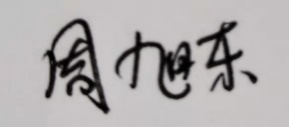 周旭东